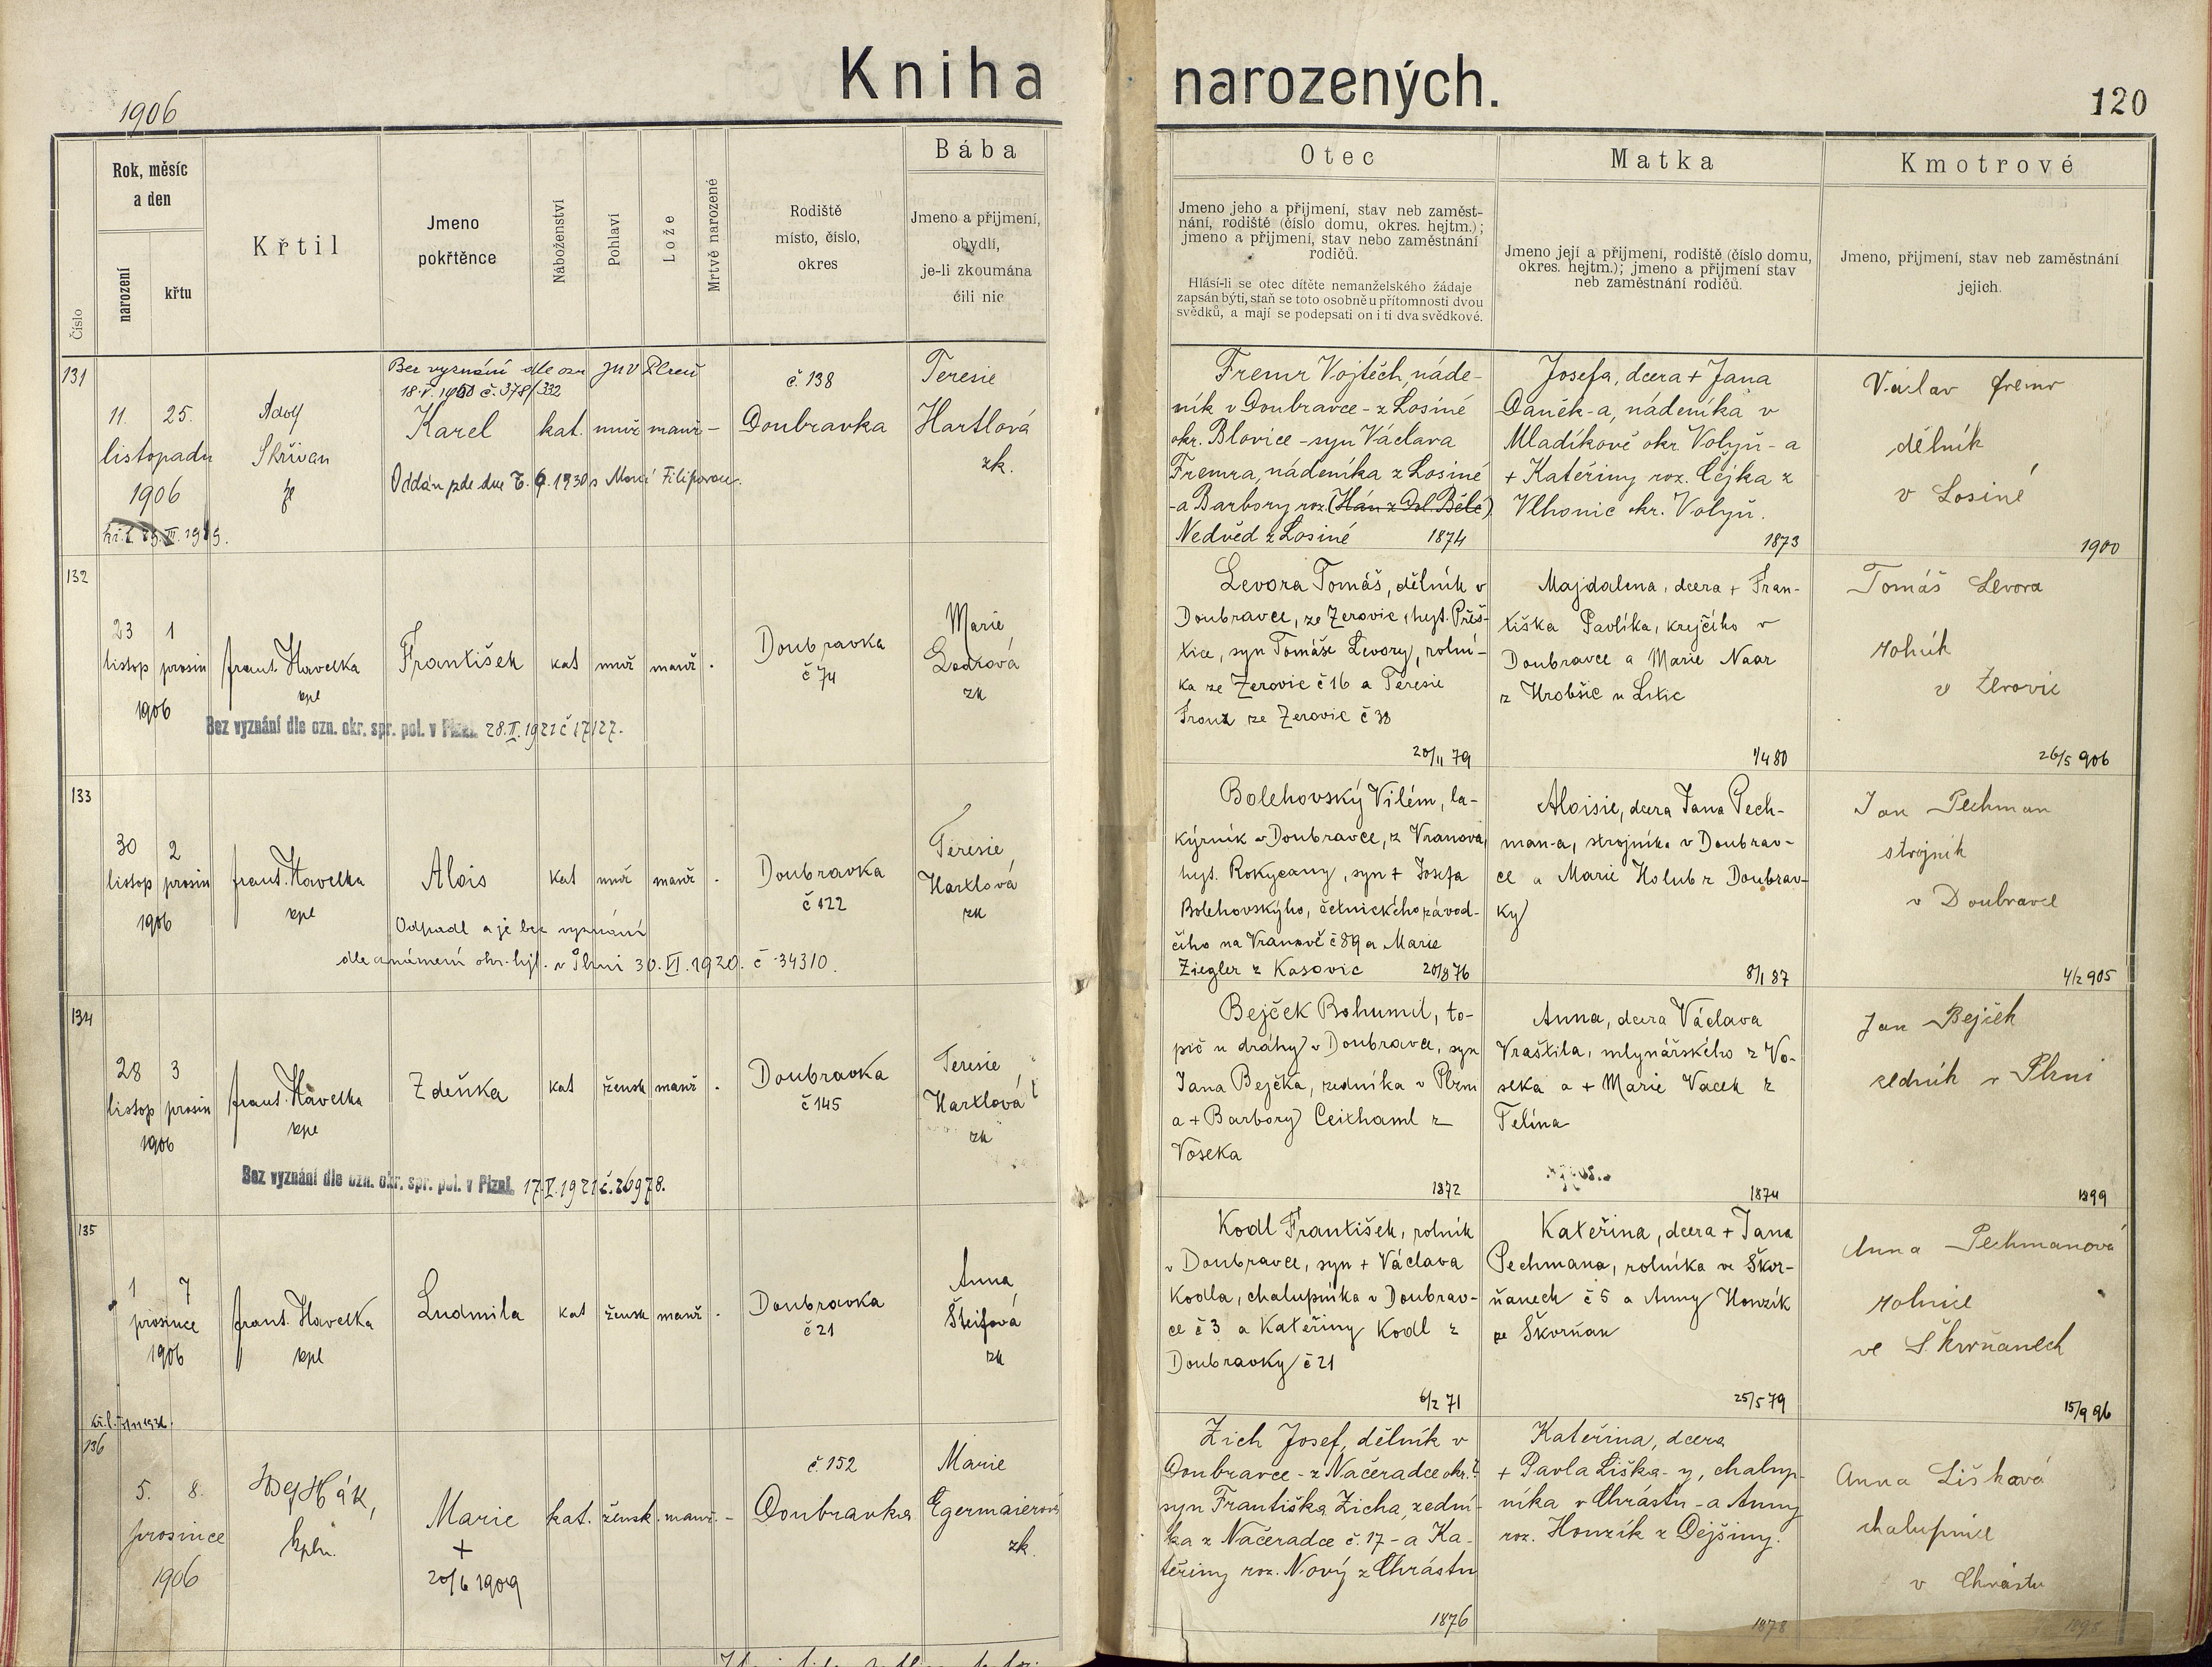 Kniha narozených.
1906
120
Číslo
Rok, měsíc
a den
narození
křtu
Křtil
Jmeno
pokřtěnce
Náboženství
Pohlaví
Lože
Mrtvě narozené
Rodiště
místo, číslo,
okres
Bába
Jmeno a přijmení,
obydlí,
je-li zkoumána
čili nic.
Otec
Jmeno jeho a přijmení, stav neb zaměst-
nání, rodiště (číslo domu, okres. hejtm.);
jmeno a přijmení, stav nebo zaměstnání
rodičů.
Hlásí-li se otec dítěte nemanželského žádaje
zapsán býti, staň se toto osobně u přítomnosti dvou
svědků, a mají se podepsati on i ti dva svědkové.
Matka
Jmeno její a přijmení, rodiště (číslo domu,
okres. hejtm.); jmeno a přijmení stav
neb zaměstnání rodičů.
Kmotrové
Jmeno, přijmení, stav neb zaměstnání
jejich.
131
11. 25.
listopadu
1906
Adolf
Skřivan
Bez vyznání dle ozn
č. 378/332
Karel
kat. muž manž –
Oddán zde dne 1930 s Filipovou.
č. 138
Doubravka
Teresie
Hartlová
zk.
Fremr Vojtěch, náde-
ník v Doubravce - z Losiné
okr. Blovice - syn Václava
Fremra, nádeníka z Losiné
- a Barbory roz. (Hán z Dol. Bělé)
Nedvěd z Losiné 1874
Josefa, dcera + Jana
Daněk-a, nádeníka v
Mladíkově okr Volyň - a
+ Kateřiny roz. Čejka z
Vlhonic okr. Volyň.
1873
Václav Fremr
dělník
v Losiné
1900
132
23 1
listop prosin
1906
frant. Havelka
kpl
František
kat muž manž .
Doubravka
č 74
Marie
zk
Bez vyznání dle ozn. okr. spr. pol. v Plzni. 28.II.1921 č 17127.
Levora Tomáš, dělník v
Doubravce, ze Zerovic, hejt. Přeš-
tice, syn Tomáše Levory, rolní-
ka ze Zerovic č 16 a Teresie
Franz ze Zerovic č 38
20/11 79
Majdalena, dcera + Fran-
tiška Pavlíka, krejčího v
Doubravce a Marie Naar
z Hrobšic u Litic
1/4 80
Tomáš Levora
rolník
v Zerovic
26/5 906
133
30 2
listop prosin
1906
frant. Havelka
kpl
Alois
kat muž manž .
Odpadl a je bez vyznání
dle oznámení okr. hejt. v Plzni 30.VI.1920. č 34310.
Doubravka
č 122
Teresie
Hartlová
zk
Bolehovský Vilém, la-
kýrník v Doubravce, z Vranova,
hejt. Rokycany, syn + Josefa
Bolehovskýho, četnického závod-
čího na Vranově č 89 a Marie
Ziegler z Kasovic 20/8 76
Aloisie, dcera Jana Pech-
man-a, strojníka v Doubrav-
ce a Marie Holub z Doubrav-
ky
8/1 87
Jan Pechman
strojník
v Doubravce
4/2 905
134
28 3
listop prosin
1906
frant. Havelka
kpl
Zdeňka
kat žensk manž .
Doubravka
č 145
Teresie
Hartlová
zk
Bez vyznání dle ozn. okr. spr. pol. v Plzni. 17.V.1921 č. 26978.
Bejček Bohumil, to-
pič u dráhy v Doubravce, syn
Jana Bejčka, zedníka v Plzni
a + Barbory Ceithaml z
Voseka
1872
Anna, dcera Václava
Vraštila, mlynářského z Vo-
seka a + Marie Vacek z
Telína
1874
Jan Bejček
zedník v Plzni
1899
135
1 7
prosince
1906
frant. Havelka
kpl
Ludmila
kat žensk manž .
Doubravka
č 21
Anna
Šteifová
zk
Kodl František, rolník
v Doubravce, syn + Václava
Kodla, chalupníka v Doubrav-
ce č 3 a Kateřiny Kodl z
Doubravky č 21
6/2 71
Kateřina, dcera + Jana
Pechmana, rolníka ve Škvr-
ňanech č 5 a Anny Honzík
ze Škvrňan
25/5 79
Anna Pechmanová
rolnice
ve Škvrňanech
15/9 96
136
5. 8.
prosince
1906
kpln.
Marie
+
20/6 1909
kat. žensk. manž. –
č. 152
Doubravka
Marie
Egermaierová
zk.
Zich Josef, dělník v
Doubravce - z Načeradce okr. ?
syn Františka Zicha, zední-
ka z Načeradce č. 17 - a Ka-
teřiny roz. Nový z Chrástu
1876
Kateřina, dcera
+ Pavla Liška-y, chalup-
níka v Chrástu - a Anny
roz. Honzík z Dejšiny.
1878
Anna Lišková
chalupnice
v Chrástu
1895